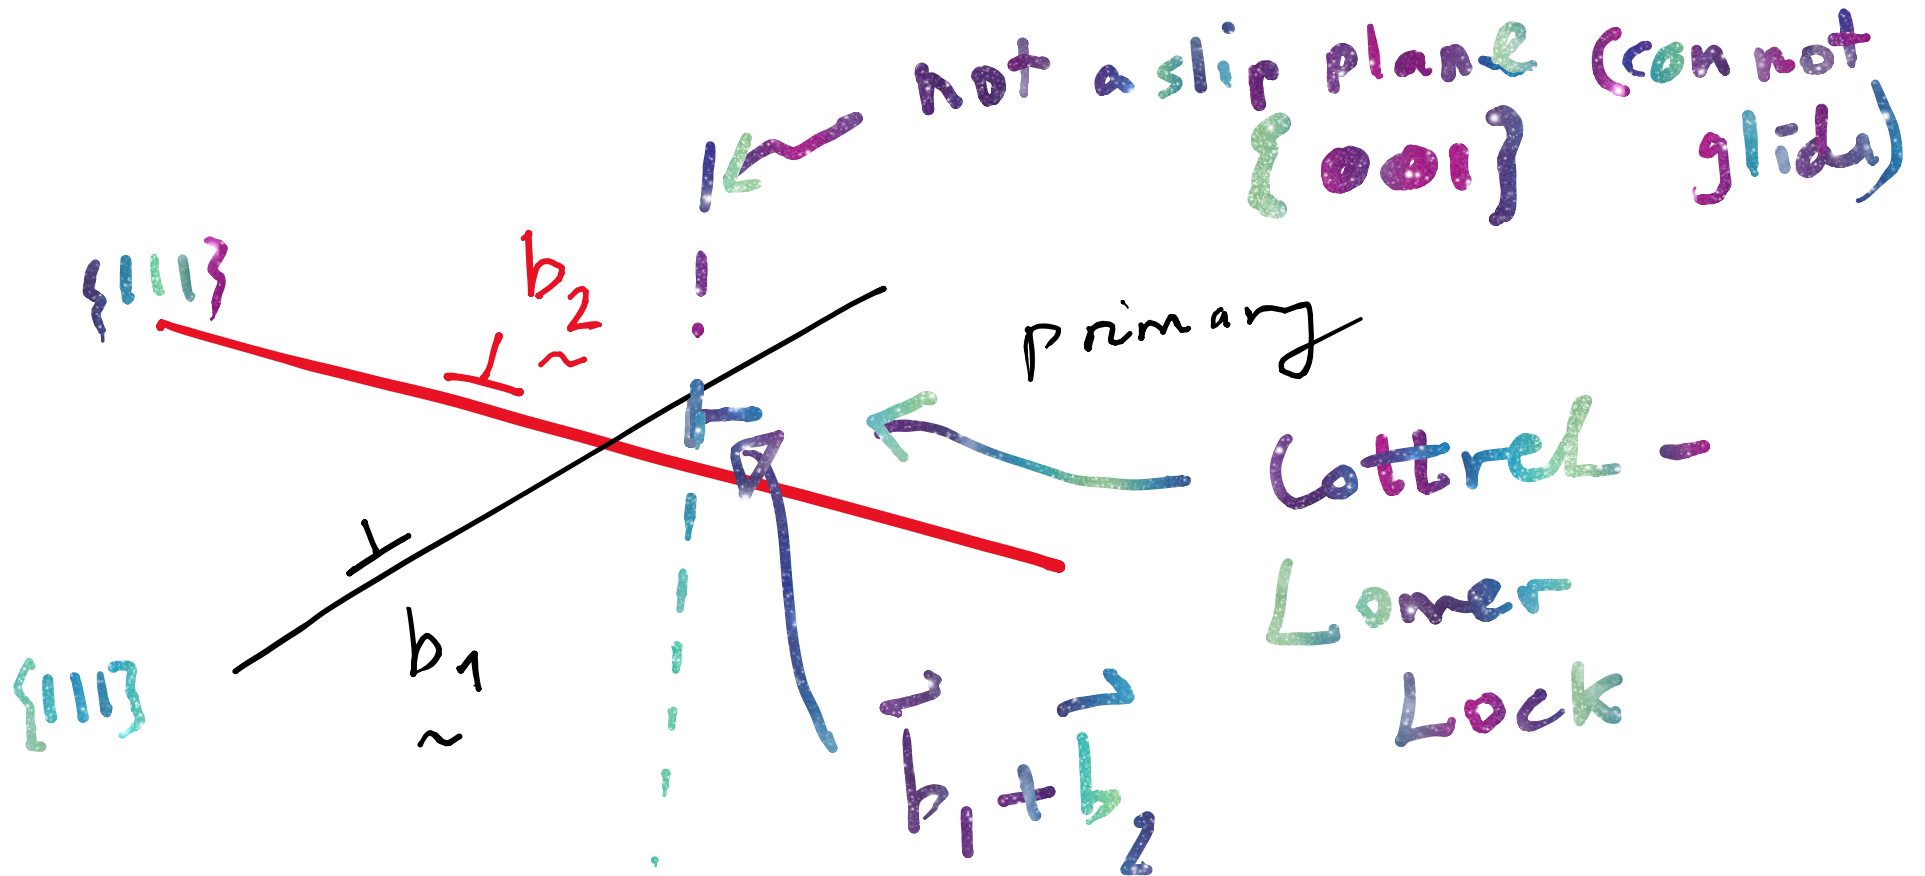 not a slip plane (can not
{001} glide)
{111}
b₂
~
primary
Cottrel -
Lomer
Lock
{111}
b₁
~
b⃗₁ + b⃗₂